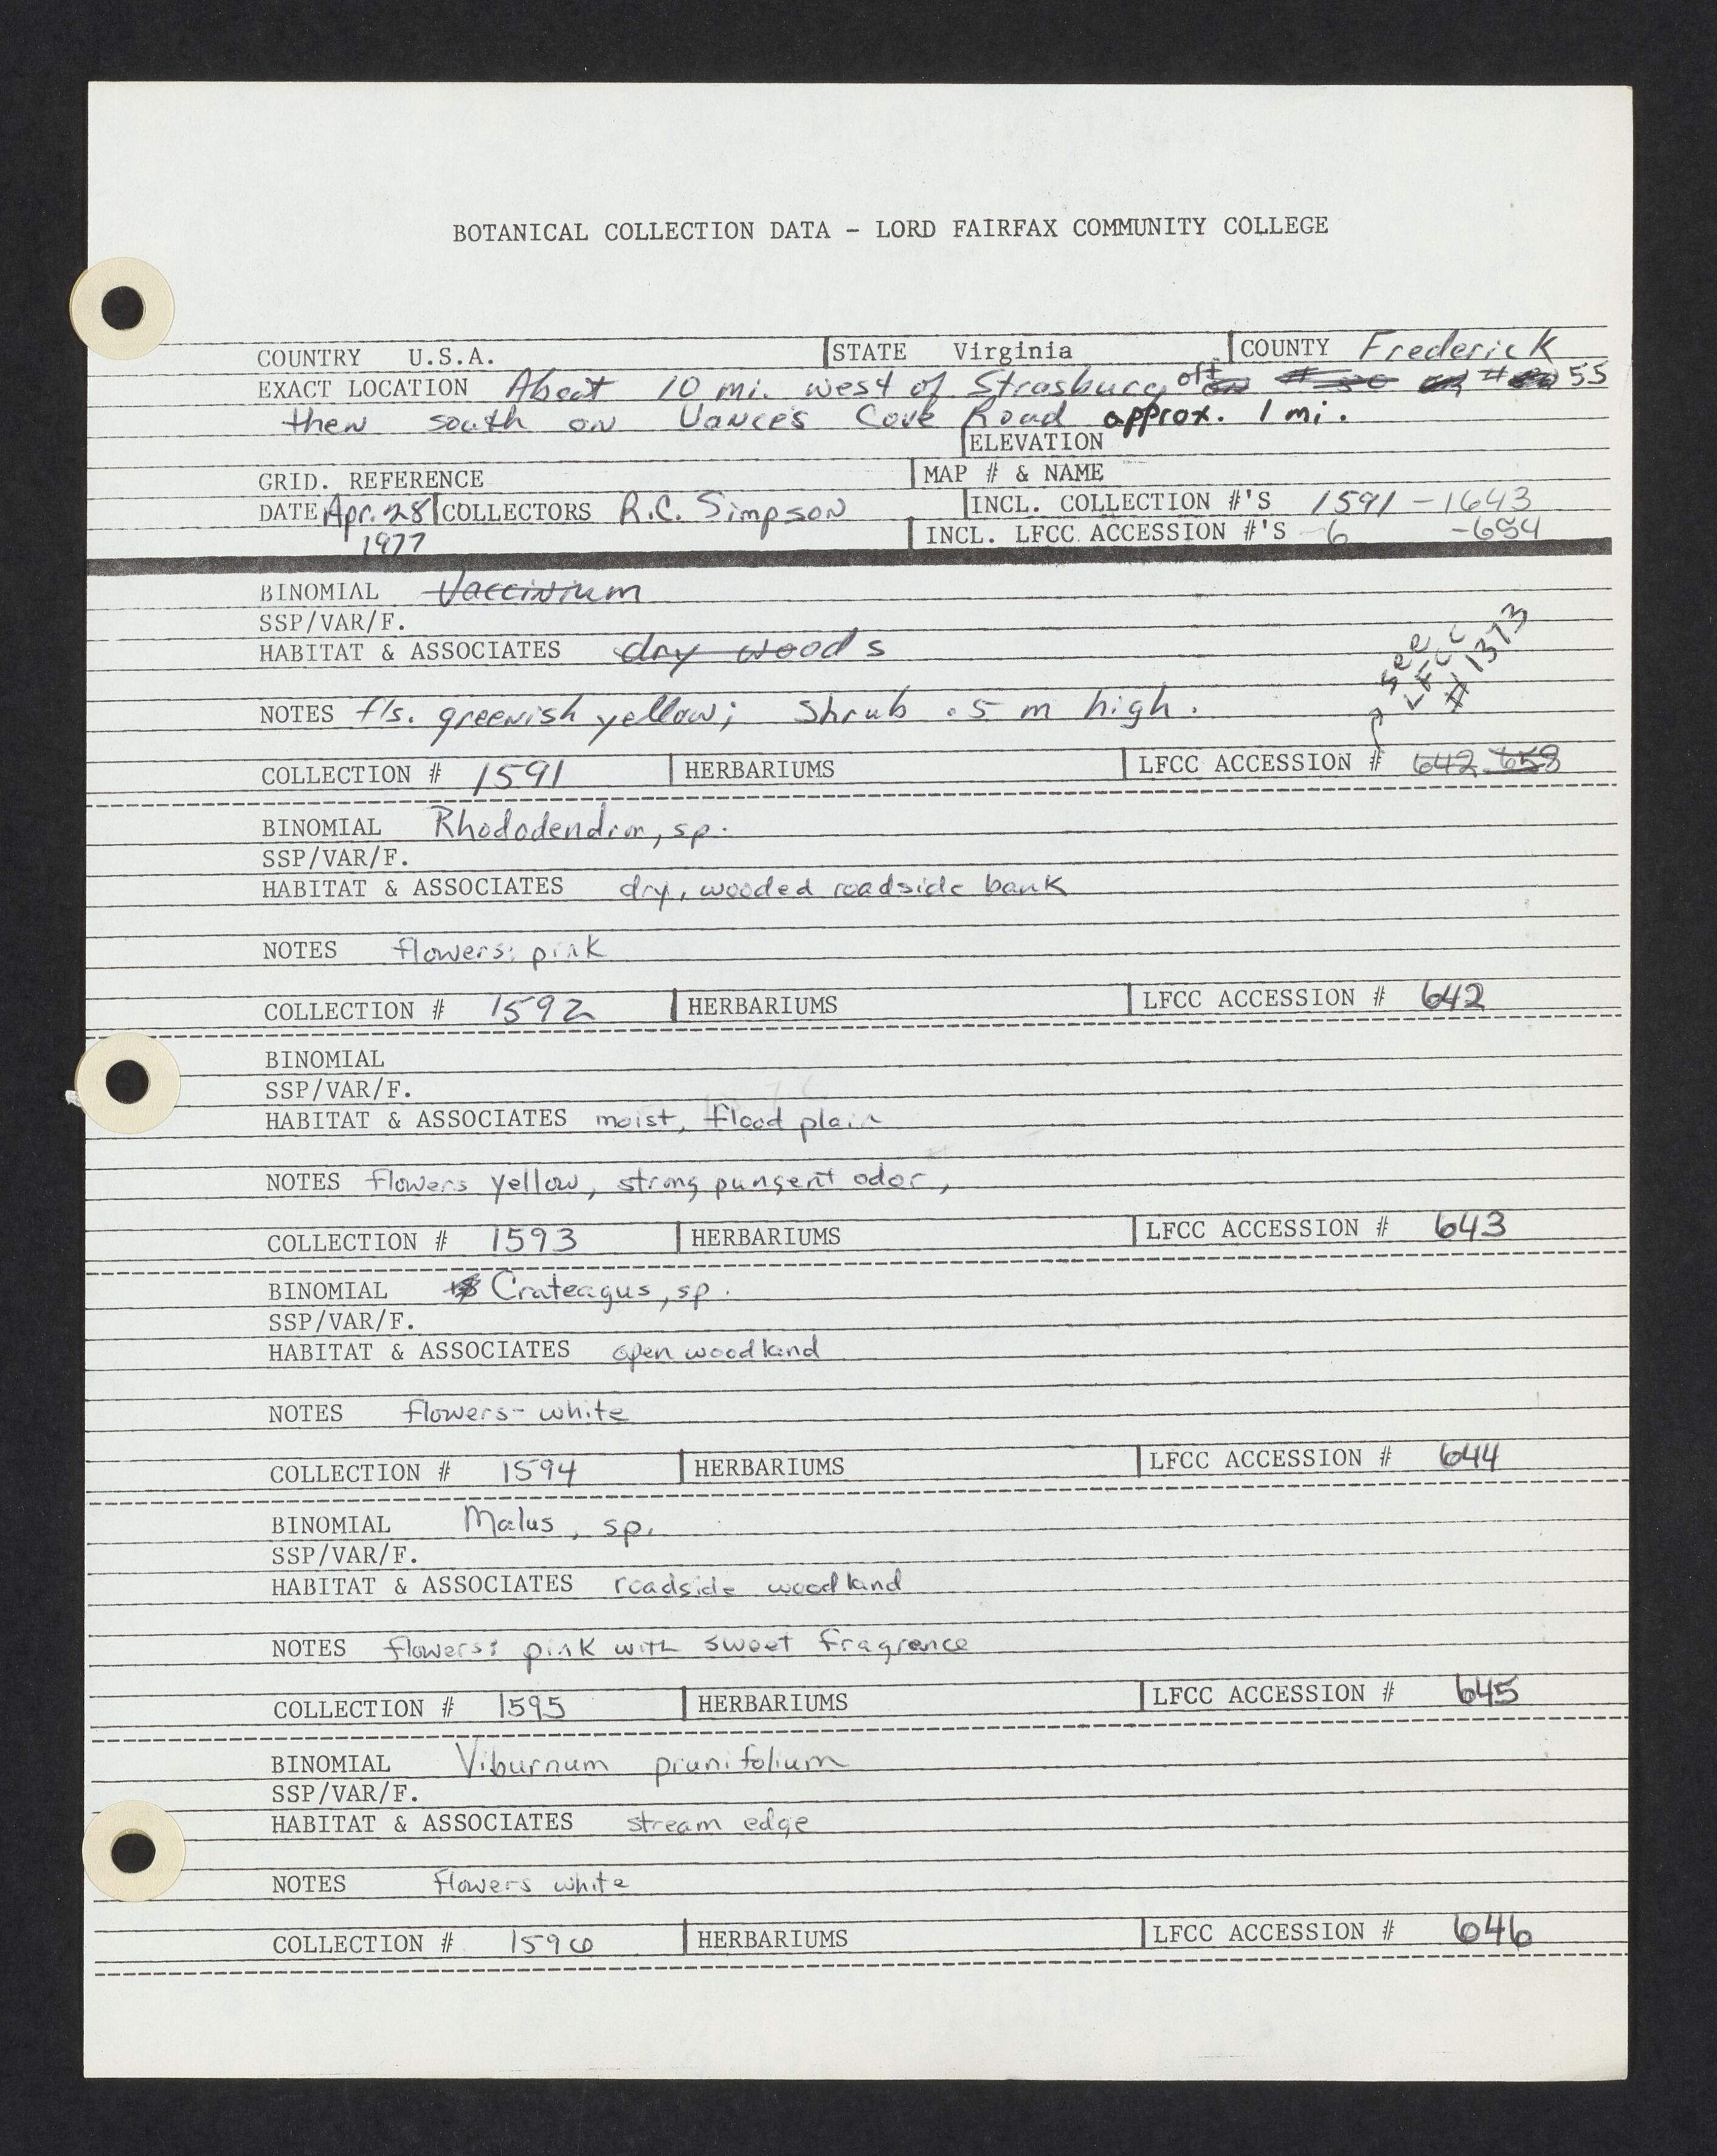 BOTANICAL COLLECTION DATA - LORD FAIRFAX COMMUNITY COLLEGE
COUNTRY U.S.A. STATE Virginia COUNTY Frederick
EXACT LOCATION About 10 mi. west of Strasburg off 55
then south on Vance's Cove Road approx. 1 mi.
ELEVATION
GRID. REFERENCE MAP # & NAME
DATE Apr. 28 COLLECTORS R.C. Simpson INCL. COLLECTION #'S 1591 - 1643
1977 INCL. LFCC ACCESSION #'S 6 -694
BINOMIAL Vaccinium
SSP/VAR/F.
HABITAT & ASSOCIATES dry woods
see
LFCC
#1373
NOTES fls. greenish yellow; Shrub .5 m high.
COLLECTION # 1591 HERBARIUMS LFCC ACCESSION # 642 658
BINOMIAL Rhododendron, sp.
SSP/VAR/F.
HABITAT & ASSOCIATES dry, wooded roadside bank
NOTES flowers: pink
COLLECTION # 1592 HERBARIUMS LFCC ACCESSION # 642
BINOMIAL
SSP/VAR/F.
HABITAT & ASSOCIATES moist, flood plain
NOTES flowers yellow, strong pungent odor,
COLLECTION # 1593 HERBARIUMS LFCC ACCESSION # 643
BINOMIAL Crateagus, sp.
SSP/VAR/F.
HABITAT & ASSOCIATES open woodland
NOTES flowers- white
COLLECTION # 1594 HERBARIUMS LFCC ACCESSION # 644
BINOMIAL Malus, sp.
SSP/VAR/F.
HABITAT & ASSOCIATES roadside woodland
NOTES flowers: pink with sweet fragrence
COLLECTION # 1595 HERBARIUMS LFCC ACCESSION # 645
BINOMIAL Viburnum prunifolium
SSP/VAR/F.
HABITAT & ASSOCIATES stream edge
NOTES flowers white
COLLECTION # 1596 HERBARIUMS LFCC ACCESSION # 646